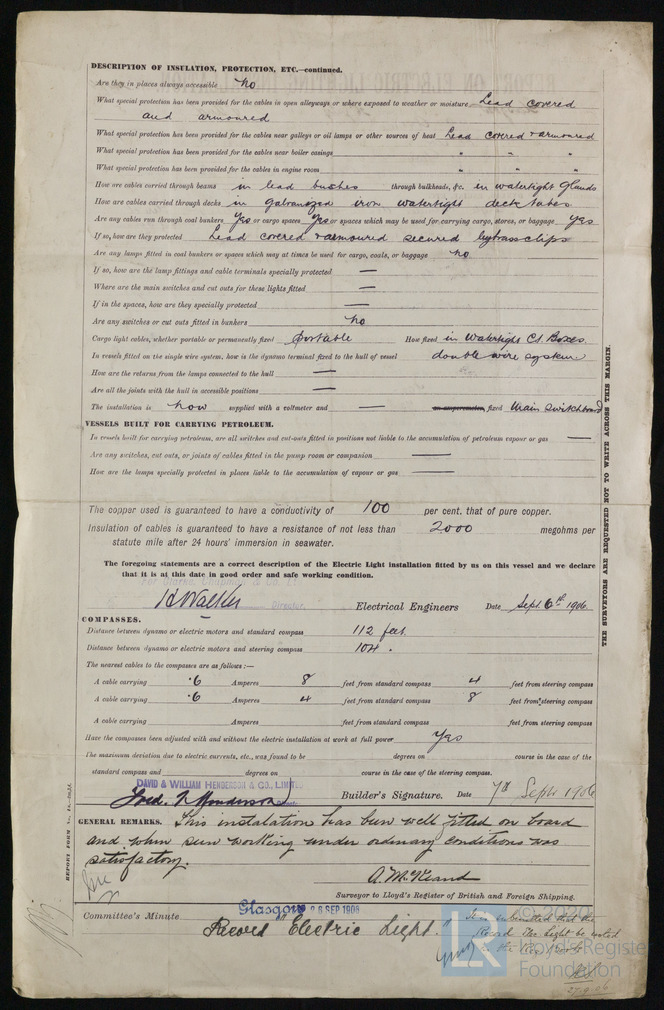 DESCRIPTION OF INSULATION, PROTECTION, ETC.—continued.
Are they in places always accessible No
What special protection has been provided for the cables in open alleyways or where exposed to weather or moisture Lead covered
and armoured
What special protection has been provided for the cables near galleys or oil lamps or other sources of heat Lead covered & armoured
What special protection has been provided for the cables near boiler casings " " "
What special protection has been provided for the cables in engine room " " "
How are cables carried through beams in lead bushes through bulkheads, &c. in watertight Glands
How are cables carried through decks in galvanized iron watertight deck tubes
Are any cables run through coal bunkers Yes or cargo spaces Yes or spaces which may be used for carrying cargo, stores, or baggage Yes
If so, how are they protected Lead covered & armoured secured by brass clips
Are any lamps fitted in coal bunkers or spaces which may at times be used for cargo, coals, or baggage No
If so, how are the lamp fittings and cable terminals specially protected —
Where are the main switches and cut outs for these lights fitted —
If in the spaces, how are they specially protected —
Are any switches or cut outs fitted in bunkers No
Cargo light cables, whether portable or permanently fixed Portable How fixed in Watertight Ct. Boxes
In vessels fitted on the single wire system, how is the dynamo terminal fixed to the hull of vessel double wire system
How are the returns from the lamps connected to the hull —
Are all the joints with the hull in accessible positions —
The installation is now supplied with a voltmeter and — an amperemeter, fixed Main switchboard
VESSELS BUILT FOR CARRYING PETROLEUM.
In vessels built for carrying petroleum, are all switches and cut-outs fitted in positions not liable to the accumulation of petroleum vapour or gas —
Are any switches, cut outs, or joints of cables fitted in the pump room or companion —
How are the lamps specially protected in places liable to the accumulation of vapour or gas —
The copper used is guaranteed to have a conductivity of 100 per cent. that of pure copper.
Insulation of cables is guaranteed to have a resistance of not less than 2000 megohms per
statute mile after 24 hours' immersion in seawater.
The foregoing statements are a correct description of the Electric Light installation fitted by us on this vessel and we declare
that it is at this date in good order and safe working condition.
Walker Director. Electrical Engineers Date Sept. 6th 1906
COMPASSES.
Distance between dynamo or electric motors and standard compass 112 feet
Distance between dynamo or electric motors and steering compass 104 "
The nearest cables to the compasses are as follows:—
A cable carrying .6 Amperes 8 feet from standard compass 4 feet from steering compass
A cable carrying .6 Amperes 4 feet from standard compass 8 feet from steering compass
A cable carrying Amperes feet from standard compass feet from steering compass
Have the compasses been adjusted with and without the electric installation at work at full power Yes
The maximum deviation due to electric currents, etc., was found to be degrees on course in the case of the
standard compass and degrees on course in the case of the steering compass.
DAVID & WILLIAM HENDERSON & CO., LIMITED
Fred. Henderson Builder's Signature. Date 7th Sept 1906
GENERAL REMARKS. This instalation has been well fitted on board
and when seen working under ordinary conditions was
satisfactory.
A. McKeand
Surveyor to Lloyd's Register of British and Foreign Shipping.
Committee's Minute Glasgow 26 SEP 1906
Record "Electric Light."
It is submitted that the
Record Elec Light be noted
in the Reg. Book
27.9.06
THE SURVEYORS ARE REQUESTED NOT TO WRITE ACROSS THIS MARGIN.
© 2020
LR
Lloyd's Register
Foundation